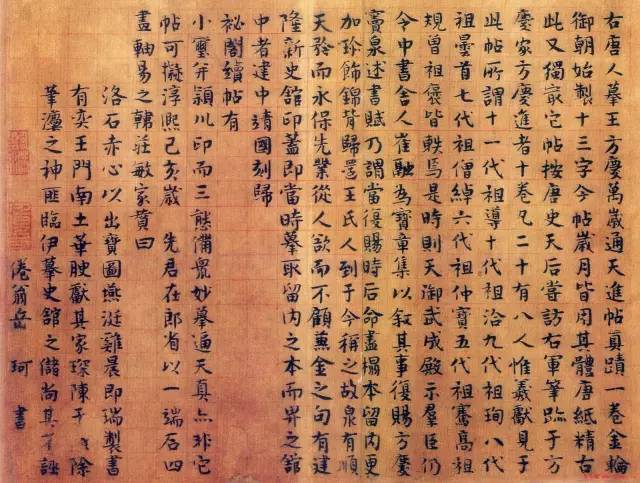 右唐人摹王方慶萬歲通天進帖真蹟一卷金輪
御朝始製十三字今帖歲月皆用其體唐紙精古
此又獨最它帖按唐史天后嘗訪右軍筆跡于方
慶家方慶進者十卷凡二十有八人惟羲獻見于
此帖所謂十一代祖導十代祖洽九代祖珣八代
祖曇首七代祖僧綽六代祖仲寶五代祖騫高祖
規曾祖褒皆軼焉是時則天御武成殿示羣臣仍
令中書舍人崔融為寶章集以叙其事復賜方慶
竇泉述書賦乃謂當復賜時后命盡榻本留內更
加珍飾錦背歸還王氏人到于今稱之故泉有順
天矜而永保先業從人欲而不顧蒹金之句有建
隆新史館印蓋即當時摹取留內之本而畀之館
中者建中靖國刻歸
祕閣續帖有
小璽并潁川印而三態備衆妙摹通天真亦非它
帖可擬淳熙己亥歲 先君在郎省以一端石四
盡軸易之韓莊敏家贊曰
洛石赤心以出寶圖燕涎雞晨即瑞製書
有奕王門南土華腴獻其家琛陳于 除
筆瀍之神匪臨伊摹史舘之儲尚其 誣
倦翁岳 珂 書